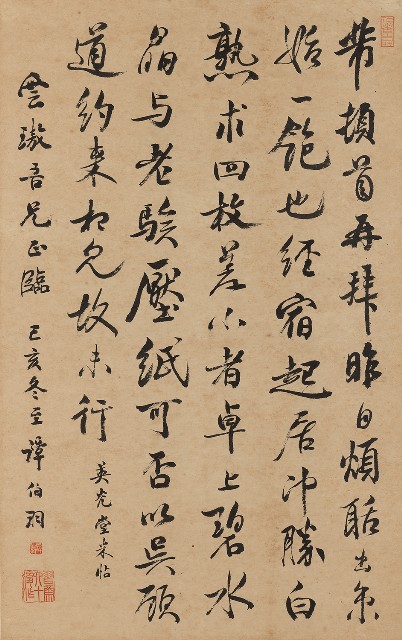 芾頓首再拜昨日煩聒出京
始一飽也經宿起居冲勝白
熟求四枚差小者卓上碧水
晶与老驗壓紙可否以吳顧
道約来相見故未行
英光堂米帖
雲璈吾兄正臨
己亥冬至譚伯羽